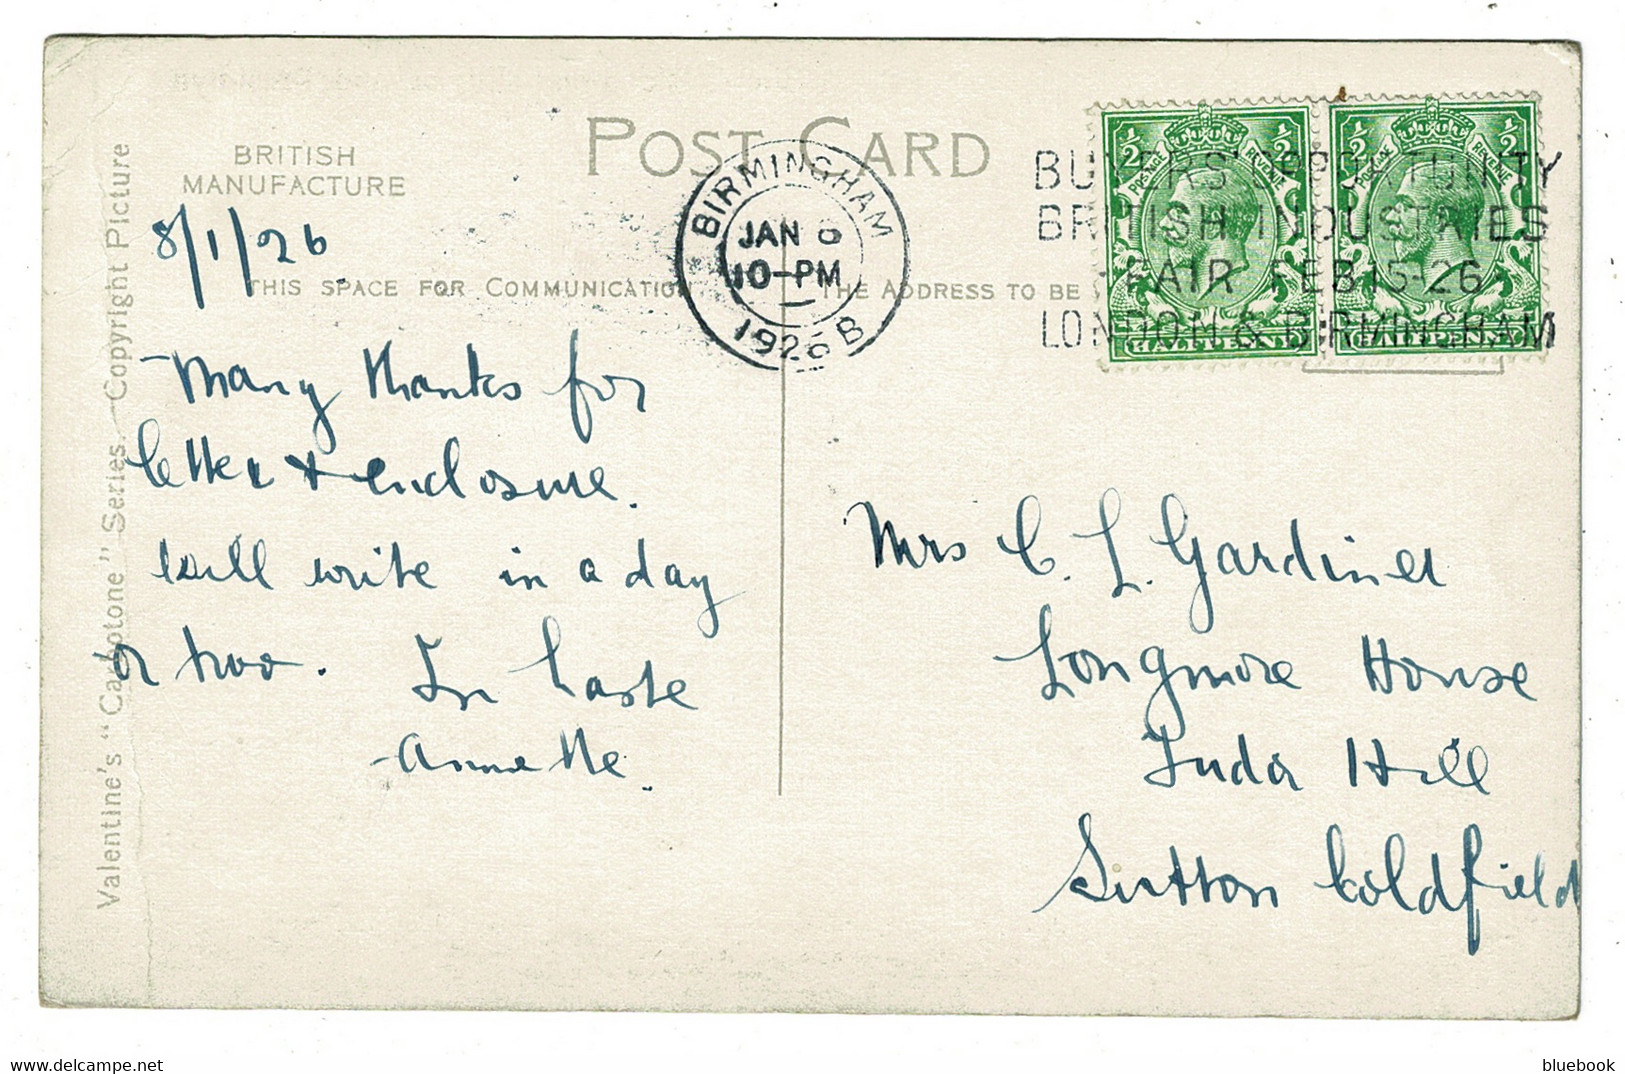 POST CARD
BRITISH
MANUFACTURE
THIS SPACE FOR COMMUNICATION
THE ADDRESS TO BE
Valentine's "Carbotone" Series. Copyright Picture
BIRMINGHAM
JAN 8
10-PM
1926 B
BUYERS' OPPORTUNITY
BRITISH INDUSTRIES
FAIR FEB 15-26
LONDON & BIRMINGHAM
½ ½
POSTAGE REVENUE
HALFPENNY
½ ½
POSTAGE REVENUE
HALFPENNY
8/1/26
Many thanks for
letter & enclosure.
Will write in a day
or two. In haste
Annette.
Mrs C. L. Gardiner
Longmore House
Tudor Hill
Sutton Coldfield
https://www.delcampe.net
bluebook